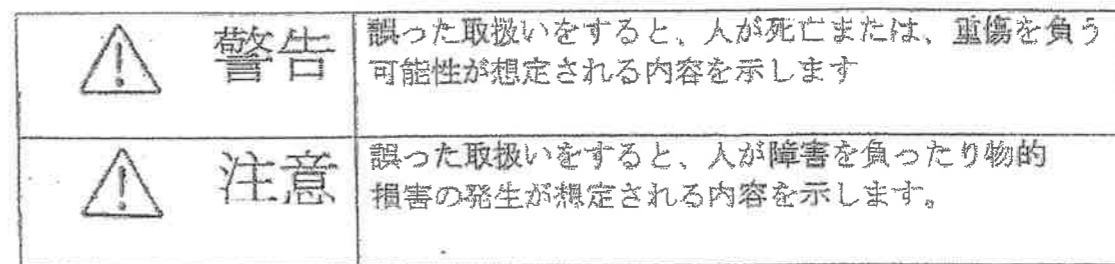 警告
誤った取扱いをすると、人が死亡または、重傷を負う
可能性が想定される内容を示します
注意
誤った取扱いをすると、人が障害を負ったり物的
損害の発生が想定される内容を示します。